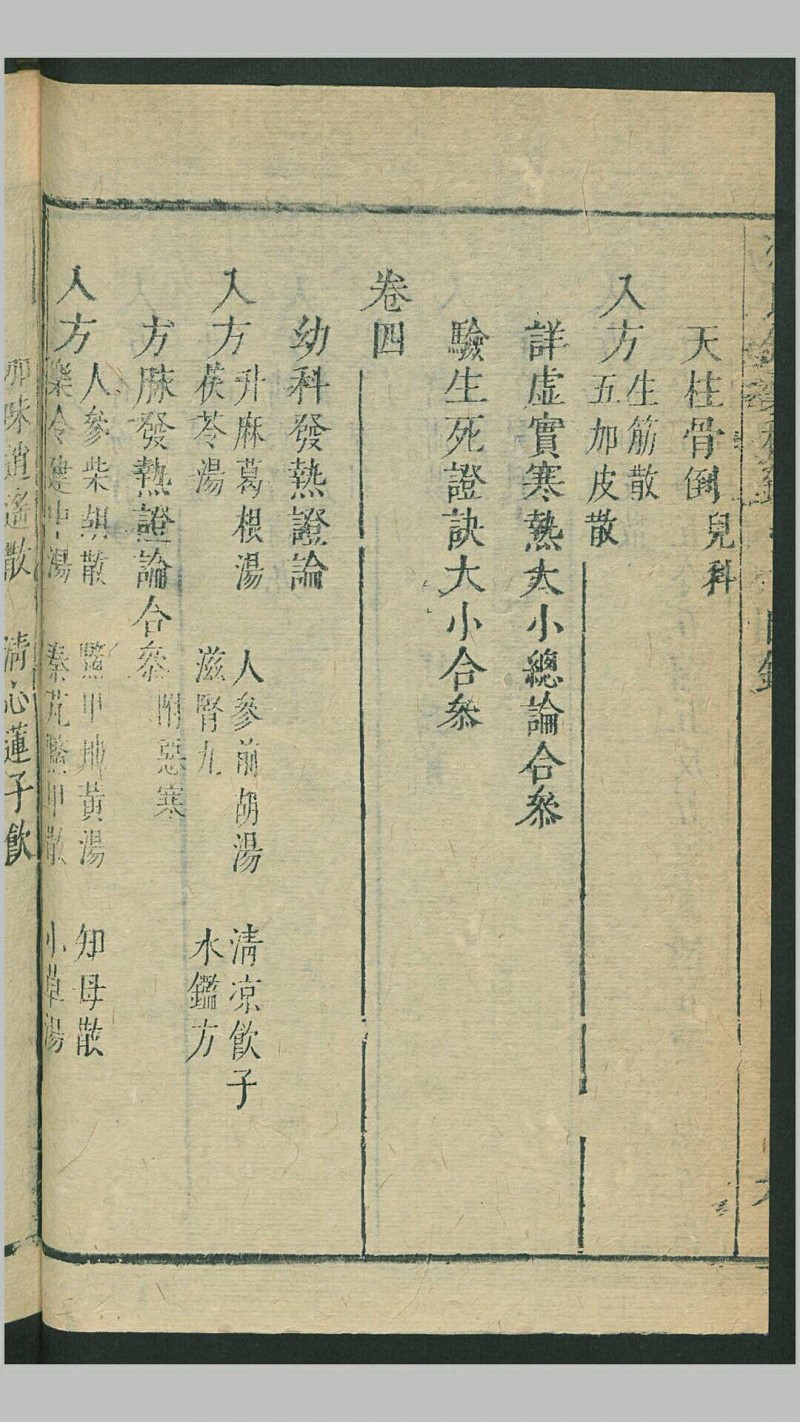 天柱骨倒 兒科
入方 生筋散
五加皮散
詳虛實寒熱大小總論合叅
驗生死證訣大小合叅
卷四
幼科發熱證論
入方 升麻葛根湯 人參前胡湯 清凉飲子
茯苓湯 滋腎丸 水鑑方
方脉發熱證論合叅 附惡寒
入方 人參柴胡散 鱉甲地黃湯 知母散
樂令建中湯 秦艽鱉甲散 小草湯
加味逍遙散 清心蓮子飲